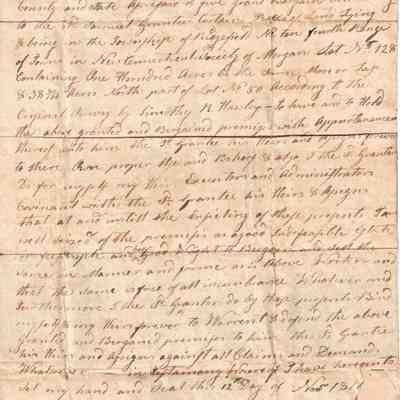 County and State do give grant bargain
to the Sd. Samuel Grantee Certain Lying
& being in the Township of Ridgfield No ten fourth Range
of Towns in New Connecticut Society of Morgan Lot No. 128
Containing One Hundred Acres be the Same More or Less
& 38 Acres North part of Lot No 80 According to the
Original Survey by Timothy R Hawley To have and to Hold
the above granted and Bargained premises with Appurtenances
thereof unto him the Sd Grantee his Heirs and forever
to there Own proper Use and Behoof & also I the Sd Grantor
Do for myself my Heirs Executors and Administrators
Covenant with the Sd. Grantee his Heirs & Assigns
that at and untill the Ensealing of these presents I am
well seized of the premises as a good Indefeasible Estate
in fee simple and Good Right to Bargain and Sell the
same in Manner and forme as is Above Written and
that the same is free of all incumbrance Whatever and
furthermore I the Sd Grantor do by these presents Bind
myself & my Heirs forever to Warrent & defend the above
granted and Bargained premises to him the Sd Grantee
his Heirs and Assigns against all Claims and Demand
Whatsoever in testamony Whereof I have hereunto
Set my hand and Seal this 12th Day of Novr